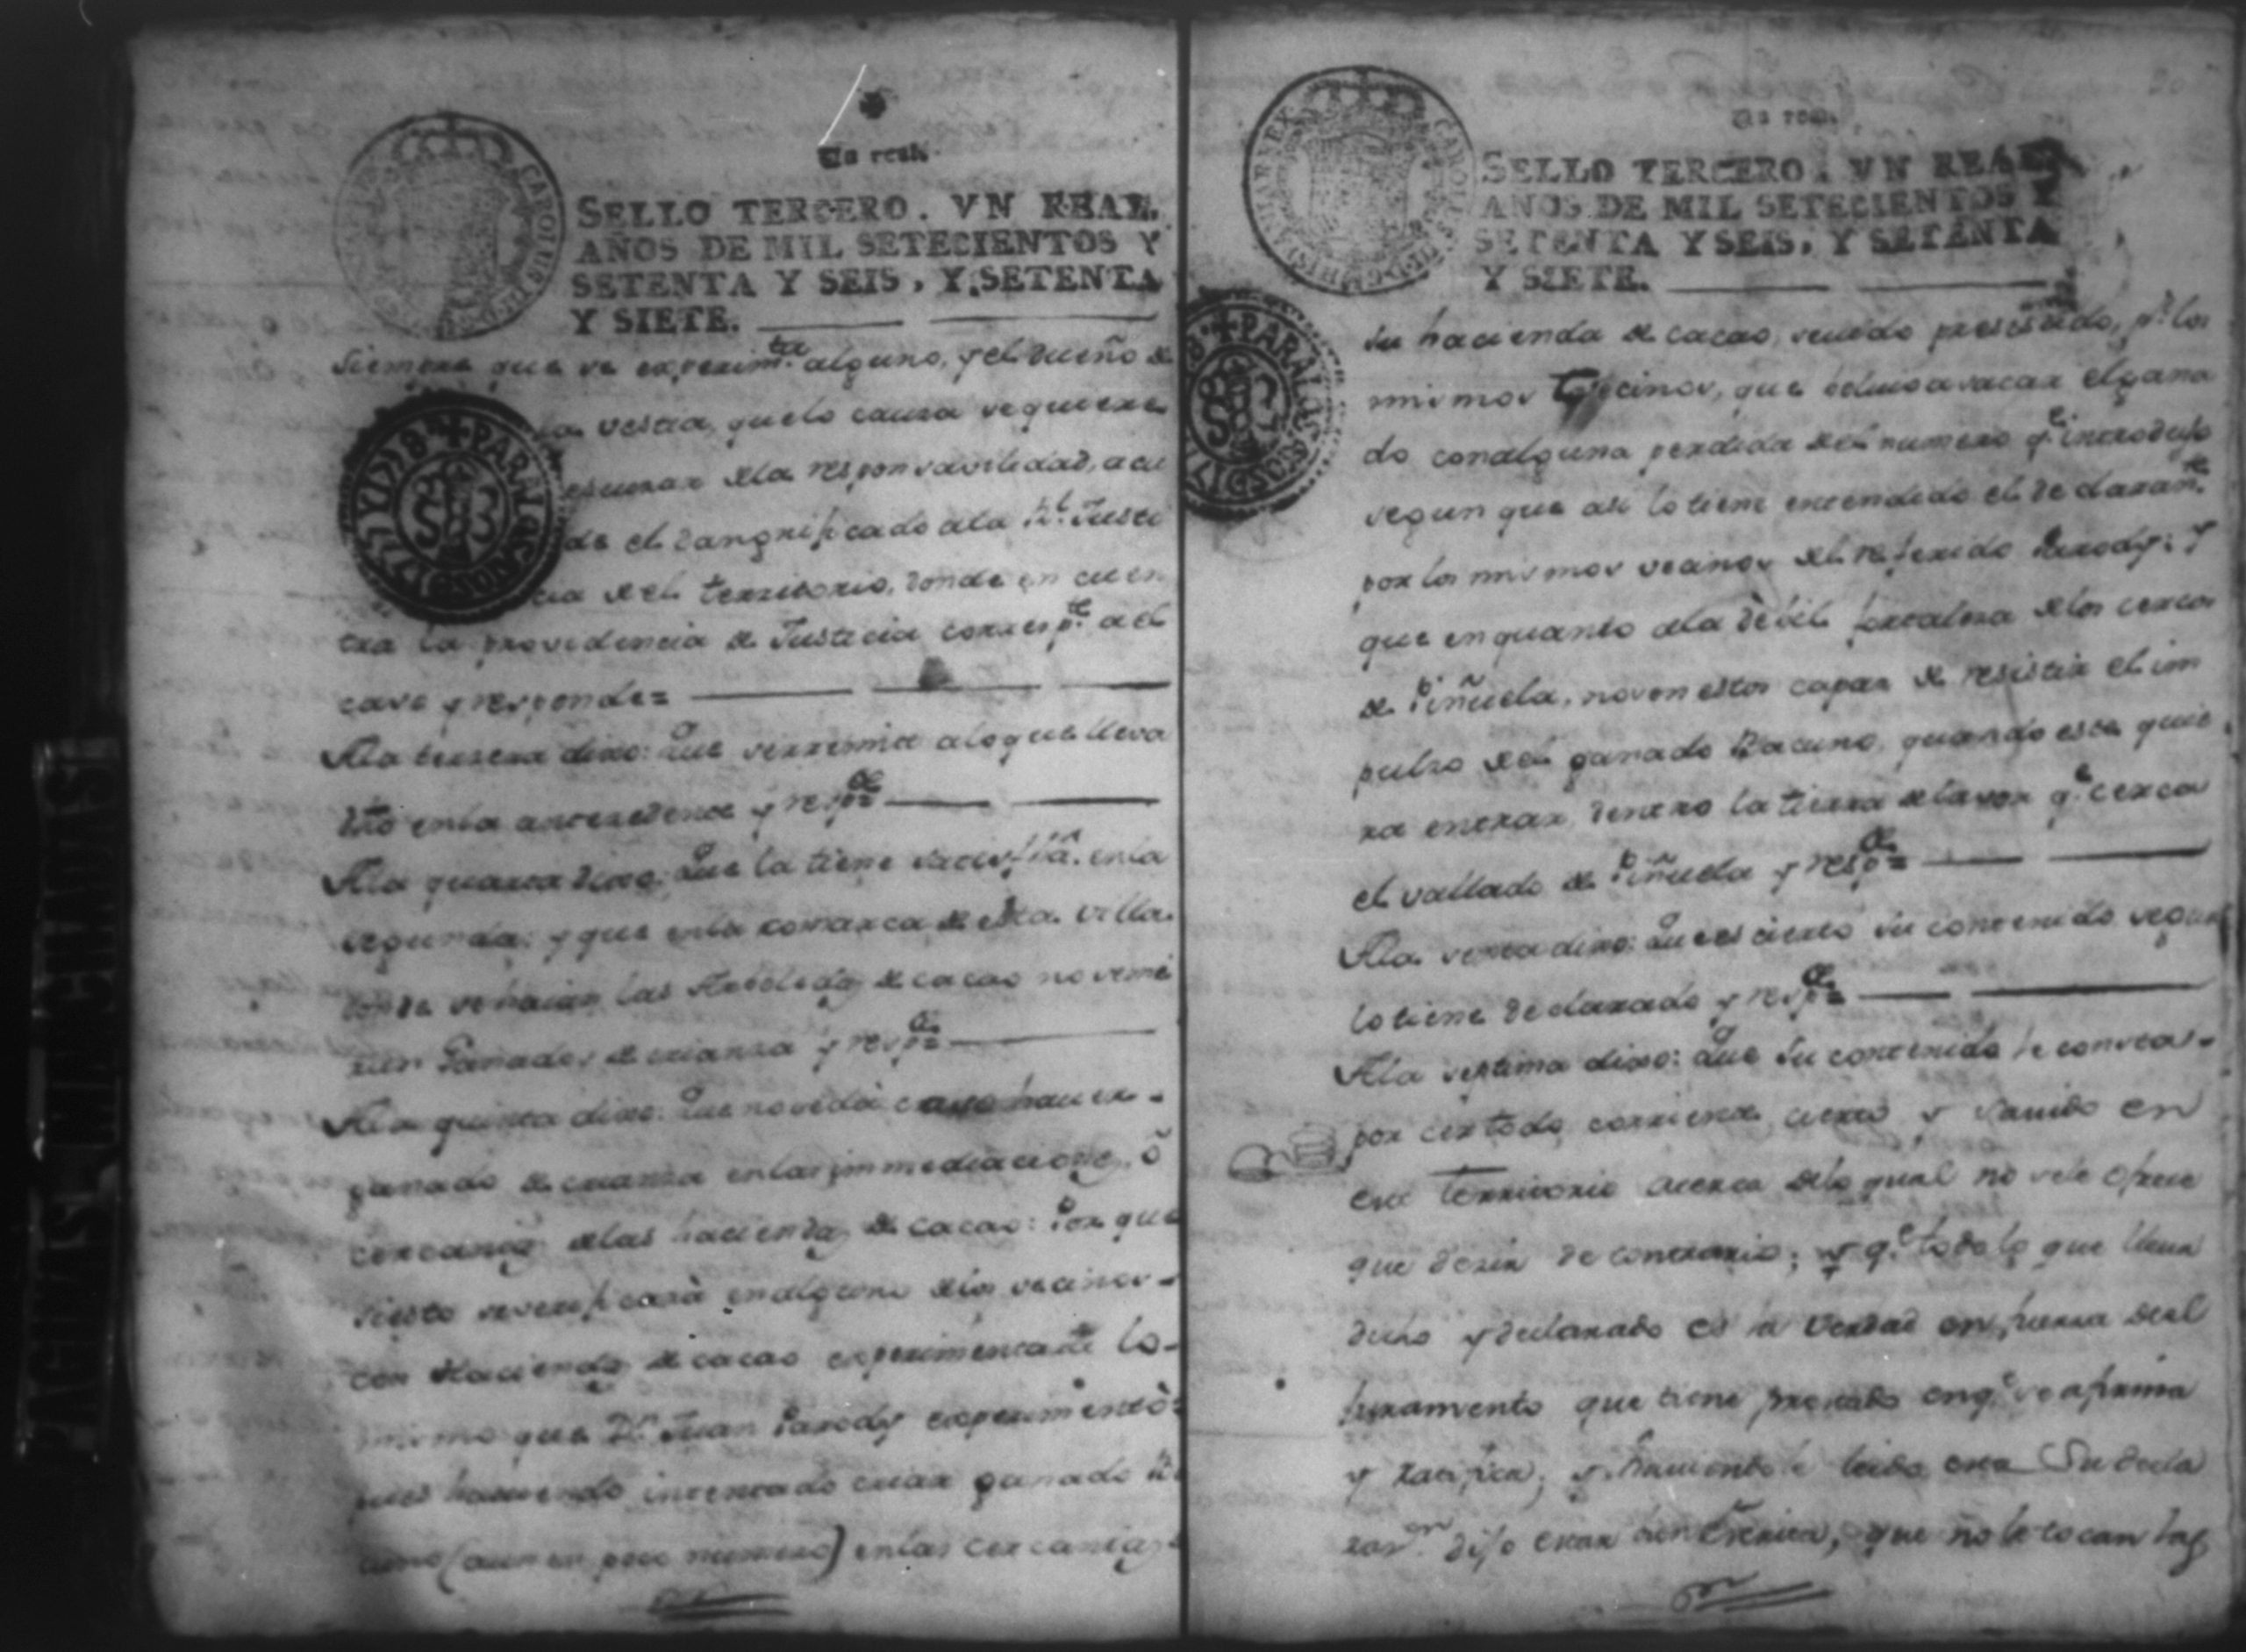 Un real.
SELLO TERCERO. VN REAL.
AÑOS DE MIL SETECIENTOS Y
SETENTA Y SEIS, Y SETENTA
Y SIETE.
CAROLUS III
Siempre que se experimta alguno, y el dueño de
la vestia, que lo causa se quiere
escusar de la responsavilidad, acu
de el dangnificado a la Rl. Justi
cia del territorio, donde encuen
tra la providencia de Justicia correspte. a el
caso y responde=
PARA LOS AÑOS D 1778 Y 79
A la tersera dixo: Que se remite a lo que lleva
dho en la antecedente y respde=
A la quarta dixo: Que la tiene satisfha. en la
segunda: y que en la comarca de esta villa
donde se hacian las Arboledas de cacao no se mé
ten Ganados de crianza y respde=
A la quinta dixo: Que no se dá caso haver
ganado de crianza en las immediaciones, ô
cercanias de las haciendas de cacao: Porque
si esto se verificará en alguno de los vecinos
con Haciendas de cacao experimentarà lo
mismo que Dn. Juan Parody experimentò:
pues haviendo intentado criar ganado Ba
cuno (aun en poco numero) en las cercanias
Un real.
SELLO TERCERO. VN REAL
AÑOS DE MIL SETECIENTOS Y
SETENTA Y SEIS, Y SETENTA
Y SIETE.
CAROLUS III D G HISPANIAR REX
PARA LOS AÑOS D 1778
su hacienda de cacao, siendo precisado, pr. los
mismos vecinos, que hubiese a sacar el gana
do con alguna perdida del numero qe. introdujo
segun que asi lo tiene entendido el declarante.
por los mismos vecinos del referido Parody: y
que en quanto a la débil fortalesa de los cercos
de Piñuela, no son estos capaz de resistir el im
pulso del ganado Bacuno, quando este quie
ra entrar dentro la tierra de lavor qe. cerca
el vallado de Piñuela y respde=
A la sexta dixo: Que es cierto su contenido segun
lo tiene declarado y respde=
A la septima dixo: Que su contenido le consta
por ser todo corriente, cierto y savido en
este Territorio acerca de lo qual no se le ofrece
que decir de contrario; y qe. todo lo que lleva
dicho y declarado es la verdad en fuerza del
juramento que tiene prestado en qe. se afirma
y ratifica; y haviendole leido esta su decla
raon. dijo estar bien escrita, que no le tocan las